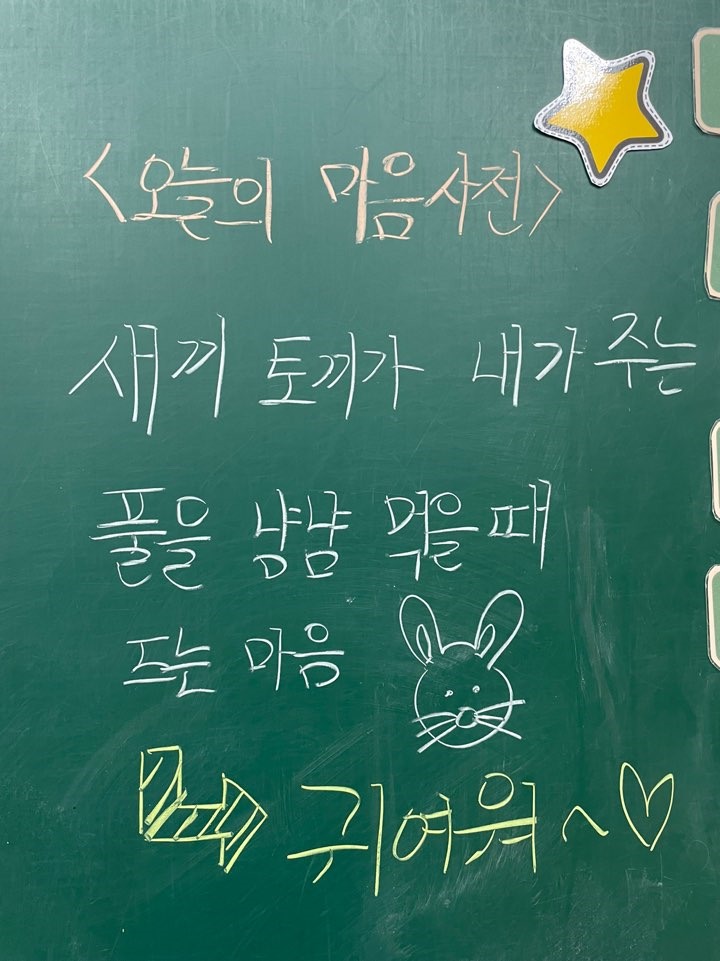 <오늘의 마음사전>
새끼 토끼가 내가 주는
풀을 냠냠 먹을 때
드는 마음
귀여워~♡